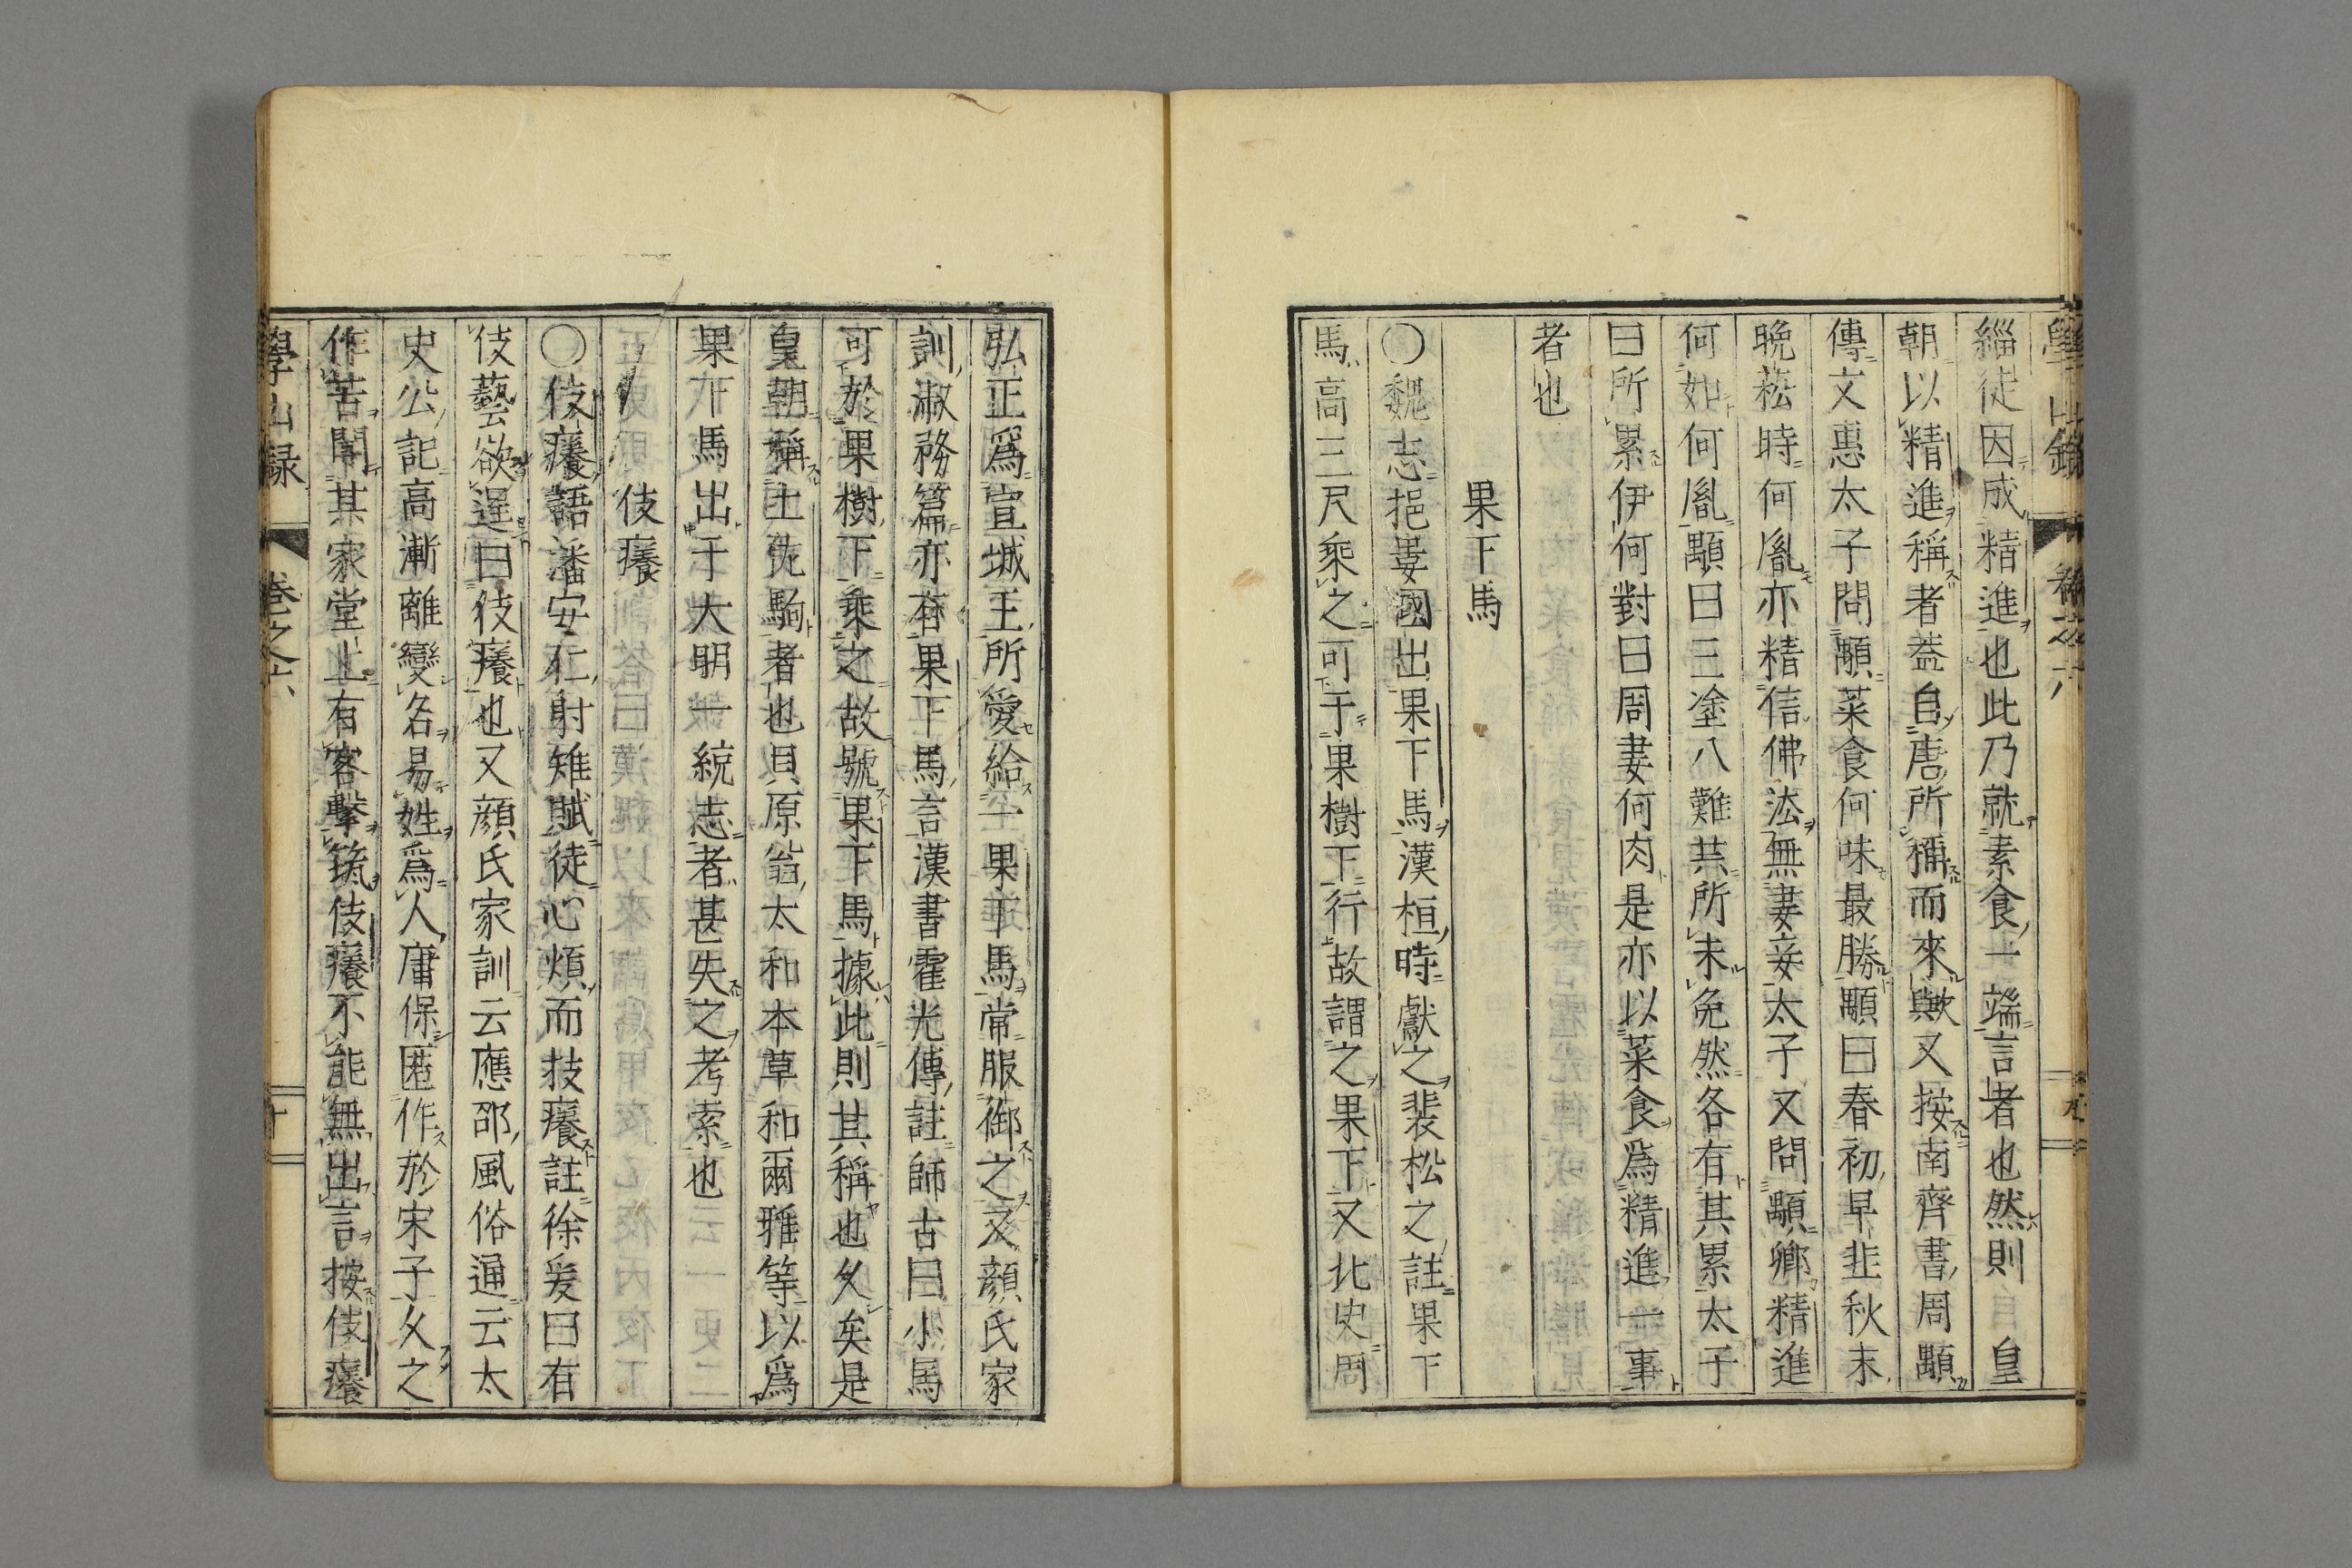 學山錄 卷之六 九
緇徒因成精進也此乃就素食一端言者也然則 皇
朝以精進稱者葢自唐所稱而來歟又按南齊書周顒
傳文惠太子問顒菜食何味最勝顒曰春初早韭秋末
晩菘時何胤亦精信佛法無妻妾太子又問顒卿精進
何如何胤顒曰三塗八難共所未免然各有其累太子
曰所累伊何對曰周妻何肉是亦以菜食爲精進一事
者也
果下馬
〇魏志挹婁國出果下馬漢桓時獻之裴松之註果下
馬高三尺乘之可于果樹下行故謂之果下又北史周
弘正爲宣城王所愛給一果下馬常服御之又顔氏家
訓淑務篇亦有果下馬言漢書霍光傳註師古曰小馬
可於果樹下乘之故號果下馬據此則其稱也久矣是
皇朝稱土佐駒者也貝原翁太和本草和爾雅等以爲
果下馬出于大明一統志者甚失之考索也
伎癢
〇伎癢語潘安仁射雉賦徒心煩而技癢註徐爰曰有
伎藝欲逞曰伎癢也又顔氏家訓云應邵風俗通云太
史公記高漸離變名易姓爲人庸保匿作於宋子久之
作苦聞其家堂上有客擊筑伎癢不能無出言按伎癢
學山録 卷之六 十